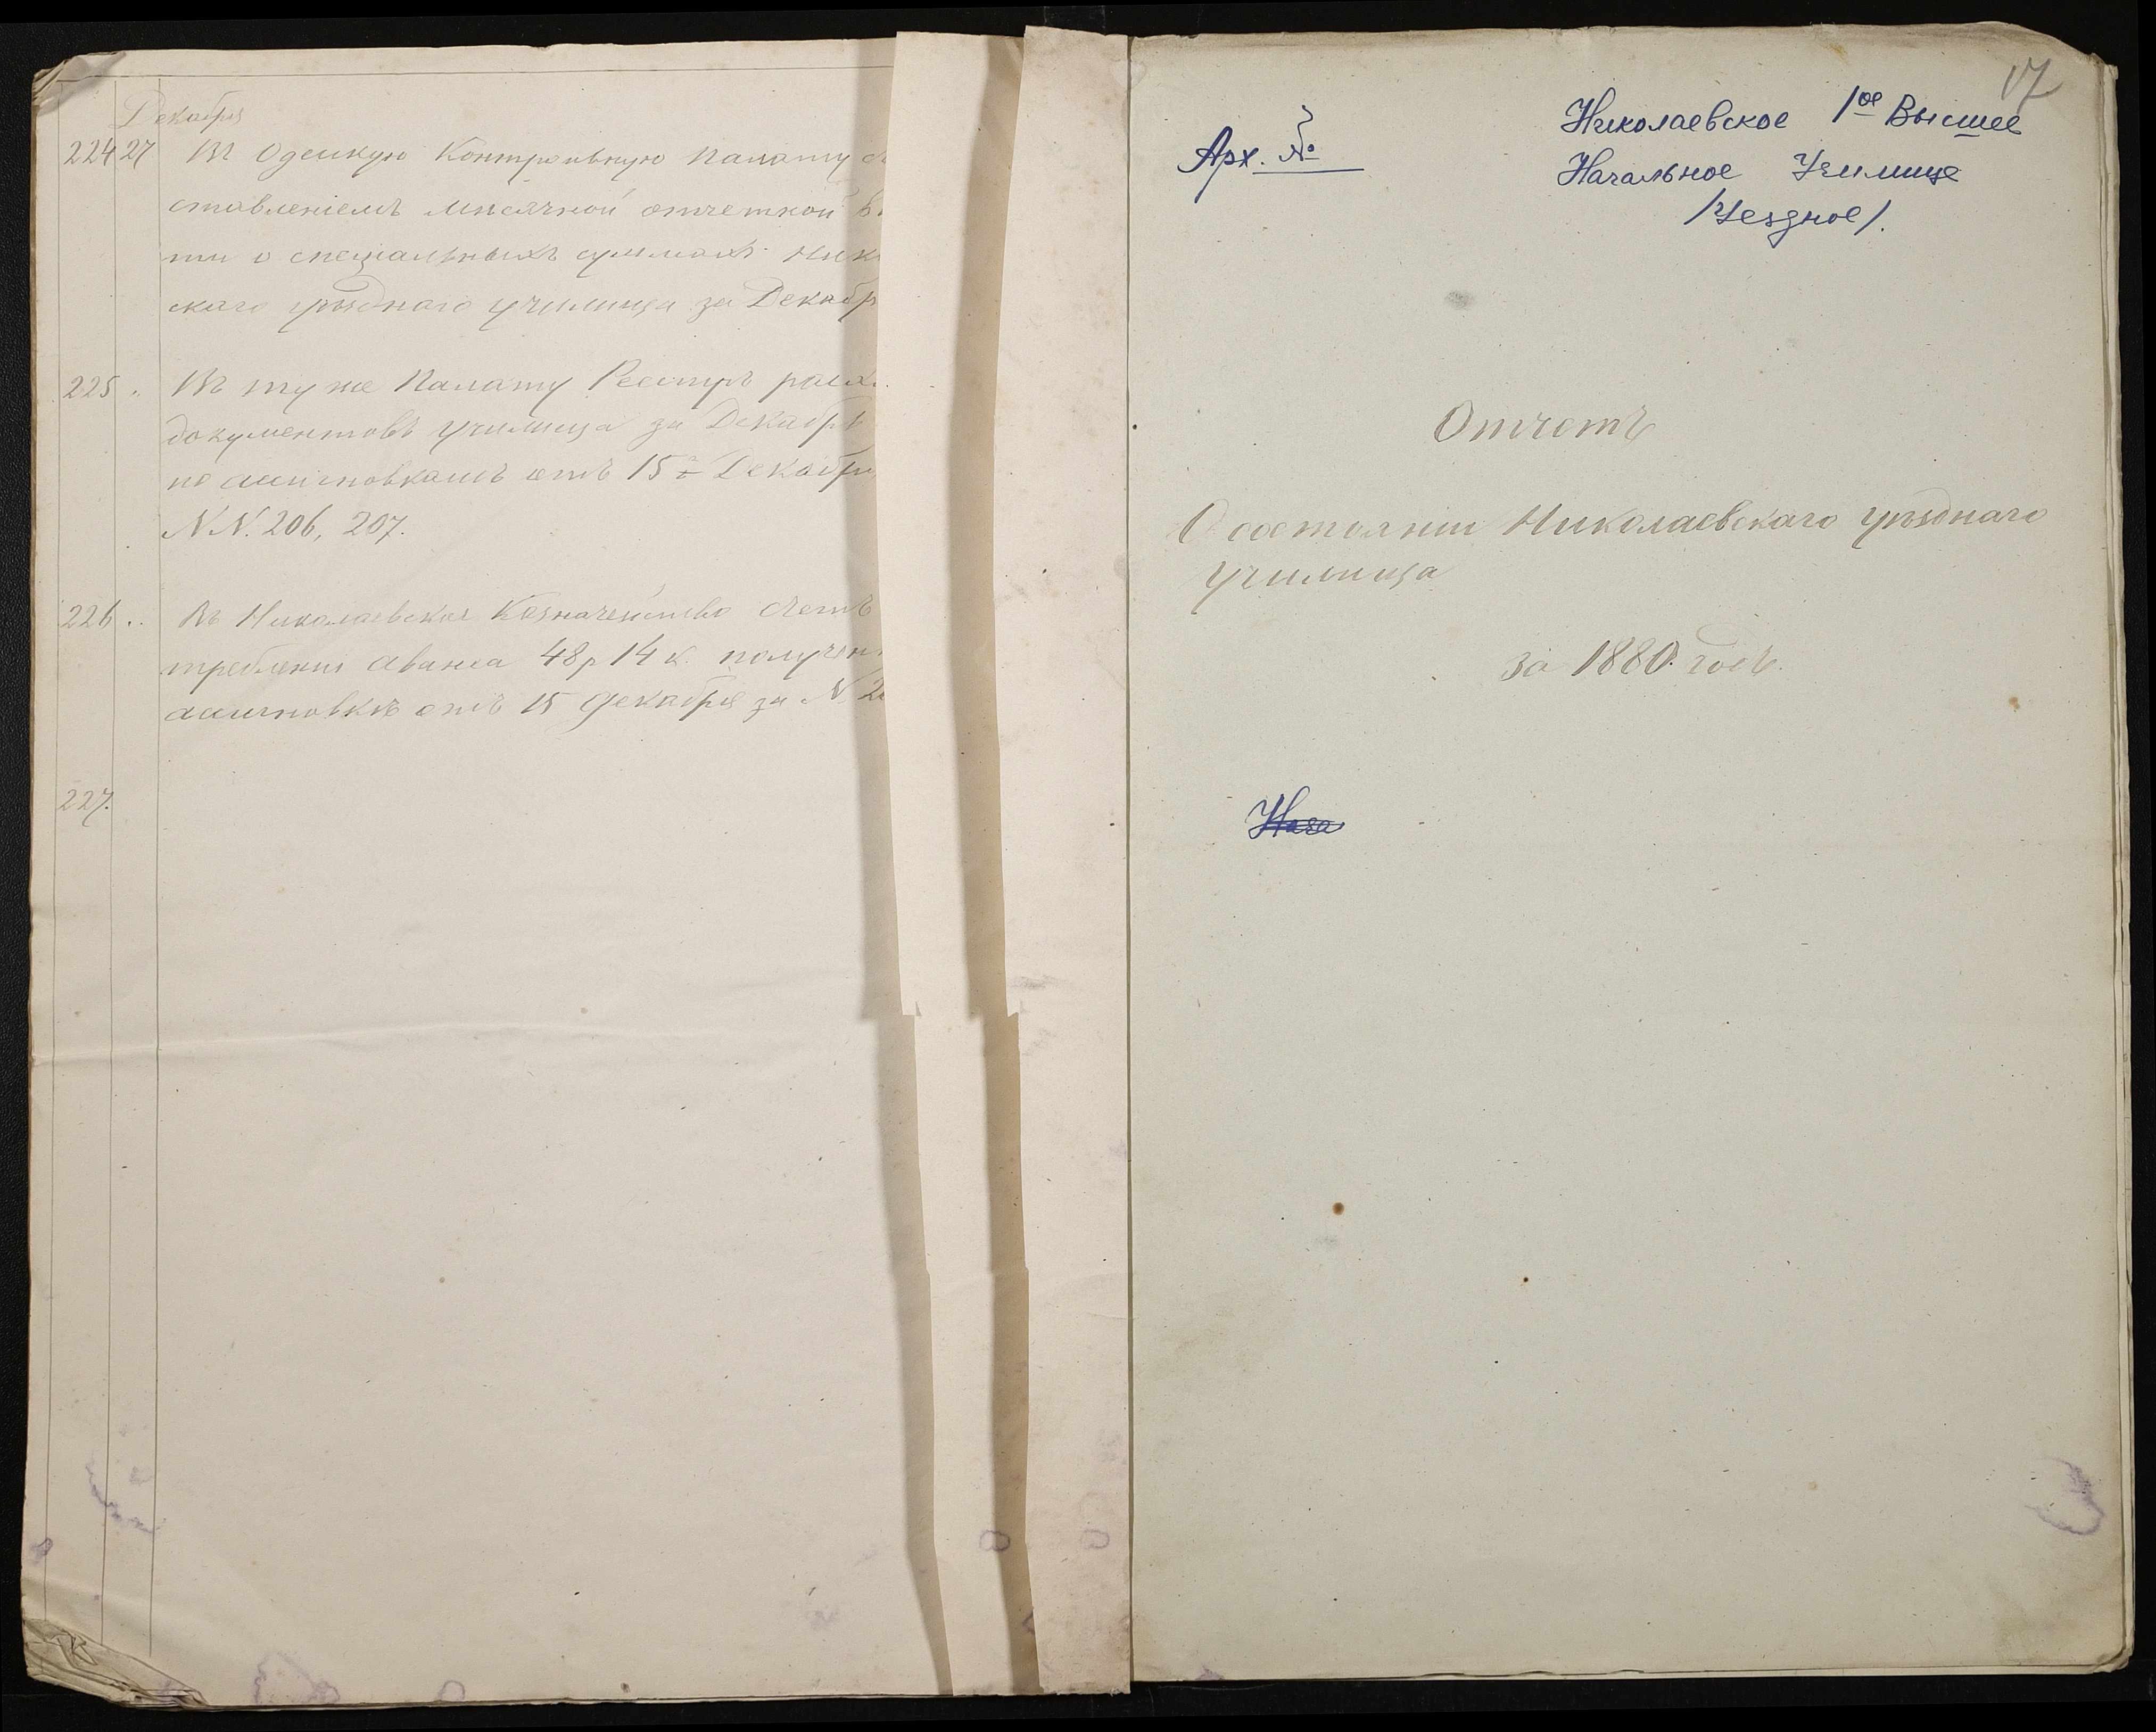 Декабря
224 27 Въ Одесскую Контрольную Палату съ
ставленіемъ мѣсячной отчетной вѣ
ти о спеціальныхъ суммахъ Ник
скаго уѣзднаго училища за Декабр
225 " Въ ту же Палату Реестръ расх
документовъ училища за Декабрь
по ассигновкамъ отъ 15го Декабря
N N. 206, 207.
226 " Въ Николаевское Казначейство счетъ
требленія аванса 48 р 14 к. получен
ассигновкѣ отъ 15 Декабря за N 2
227.
17
Арх. №
Николаевское 1ое Высшее
Начальное Училище
/Уездное/.
Отчетъ
О состояніи Николаевскаго уѣзднаго
училища
за 1880. годъ.